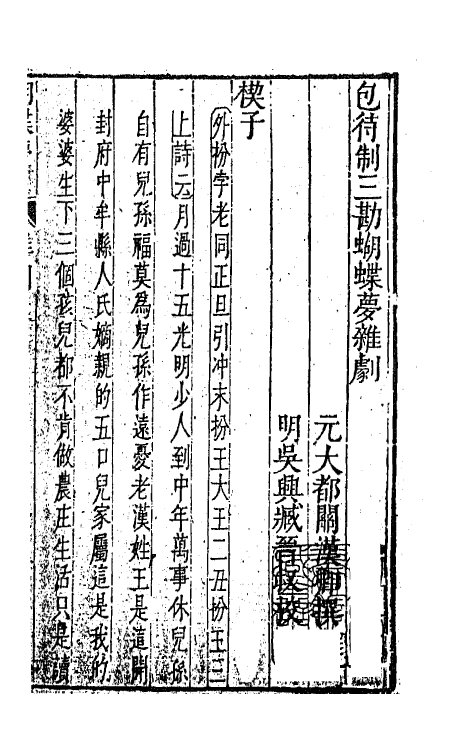 包待制三勘蝴蝶夢雜劇
元大都關漢卿撰
明吳興臧晉叔校
楔子
外扮孛老同正旦引冲末扮王大王二丑扮王三
上詩云月過十五光明少人到中年萬事休兒孫
自有兒孫福莫為兒孫作遠憂老漢姓王是這開
封府中牟縣人氏嫡親的五口兒家屬這是我的
婆婆生下三個孩兒都不肯做農庄生活只是讀